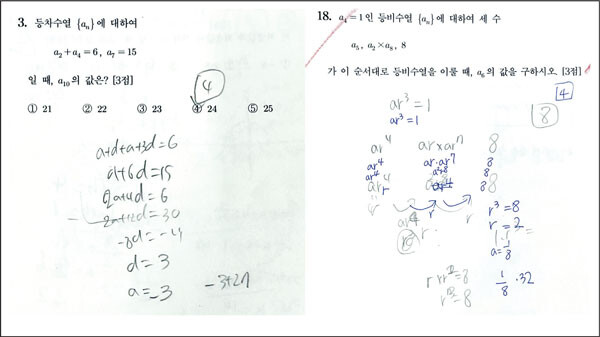 3. 등차수열 {aₙ}에 대하여
a₂+a₄=6, a₇=15
일 때, a₁₀의 값은? [3점]
4
① 21 ② 22 ③ 23 ④ 24 ⑤ 25
a+d+a+3d=6
a+6d=15
2a+4d=6
2a+12d=30
-8d=-24
d=3
a=-3
-3+27
18. a₄=1인 등비수열 {aₙ}에 대하여 세 수
a₅, a₂×a₈, 8
가 이 순서대로 등비수열을 이룰 때, a₆의 값을 구하시오. [3점]
4
8
ar³=1
ar³=1
ar⁴ ar×ar⁷ 8
ar⁴ ar·ar⁷ 8
r³=8
r=2
a=1/8
1/8·32